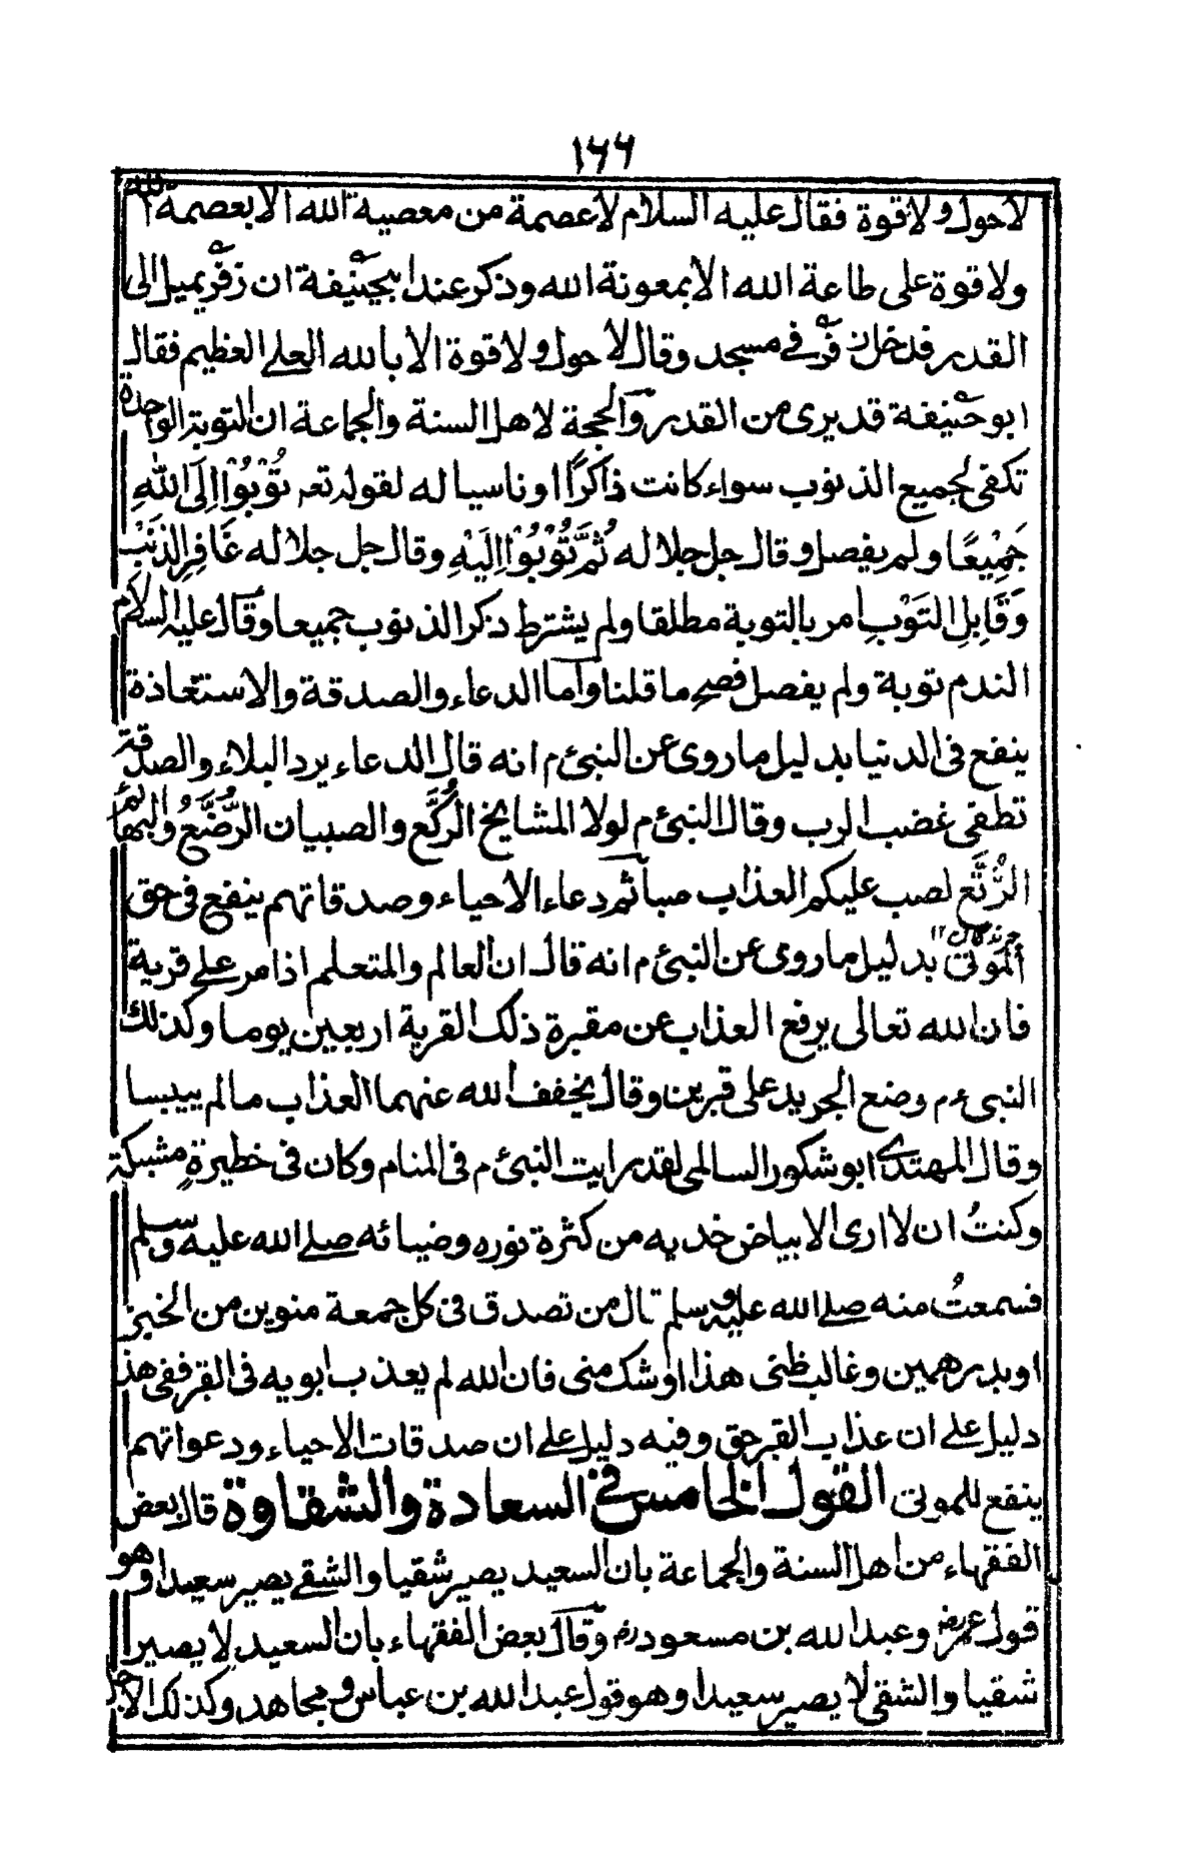 ١٦٦
لاحول ولاقوة فقال عليه السلام لاعصمة من معصية الله الا بعصمة الله
ولا قوة على طاعة الله الا بمعونة الله وذكر عند ابيحنيفة ان زفر يميل الى
القدر فدخل زفر في مسجد وقال لا حول ولا قوة الا بالله العلي العظيم فقال
ابو حنيفة قد يرى من القدر والحجة لاهل السنة والجماعة ان التوبة الواحدة
تكفى لجميع الذنوب سواء كانت ذاكرًا او ناسيا له لقوله تعـ تُوْبُوْا اِلَى اللّٰهِ
جَمِيْعًا ولم يفصل وقال جل جلاله ثُمَّ تُوْبُوْا اِلَيْهِ وقال جل جلاله غَافِرِ الذَّنْبِ
وَقَابِلِ التَوْبِ امر بالتوبة مطلقا ولم يشترط ذكر الذنوب جميعا وقال عليه السلام
الندم توبة ولم يفصل فصح ما قلنا واما الدعاء والصدقة والاستعاذة
ينفع فى الدنيا بدليل ما روى عن النبي م انه قال الدعاء يرد البلاء والصدقة
تطفى غضب الرب وقال النبي م لولا المشايخ الرُّكَّع والصبيان الرُّضَّعُ والبهائم
الرُّتَّع لصب عليكم العذاب صبا ثم دعاء الاحياء وصدقاتهم ينفع فى حق
الموتى بدليل ما روى عن النبي م انه قال ان العالم والمتعلم اذا مر على قرية
فان الله تعالى يرفع العذاب عن مقبرة ذلك القرية اربعين يوما وكذلك
النبى ءم وضع الجريد على قبرين وقال يخفف الله عنهما العذاب ما لم ييبسا
وقال المهتدى ابو شكور السالمى لقد رايت النبي م فى المنام وكان فى خطيرةٍ مشبكة
وكنتُ ان لا ارى الا بياض خديه من كثرة نوره وضيائه صلى الله عليه وسلم
فسمعتُ منه صلى الله عليه وسلم قال من تصدق فى كل جمعة منوين من الخبز
او بدرهمين وغالب ظنى هذا او شك منى فان الله لم يعذب ابويه فى القبر ففى هذا
دليل على ان عذاب القبر حق وفيه دليل على ان صدقات الاحياء ودعواتهم
ينفع للموتى القول الخامس في السعادة والشقاوة قال بعض
الفقهاء من اهل السنة والجماعة بان السعيد يصير شقيا والشقي يصير سعيدا وهو
قول عمر رض وعبد الله بن مسعود رض وقال بعض الفقهاء بان السعيد لا يصير
شقيا والشقى لا يصير سعيدا وهو قول عبد الله بن عباس و مجاهد وكذلك